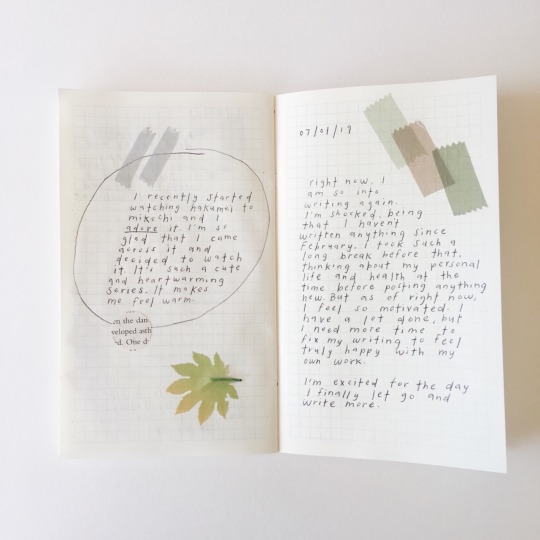 I recently started
watching hakumei to
mikochi and I
adore it. I'm so
glad that I came
across it and
decided to watch
it. It's such a cute
and heartwarming
series. It makes
me feel warm.
en the dar
veloped asth
d. One d
07/01/19
right now, I
am so into
writing again.
I'm shocked, being
that I haven't
written anything since
February. I took such a
long break before that,
thinking about my personal
life and health at the
time before posting anything
new. But as of right now,
I feel so motivated. I
have a lot done, but
I need more time to
fix my writing to feel
truly happy with my
own work.
I'm excited for the day
I finally let go and
write more.